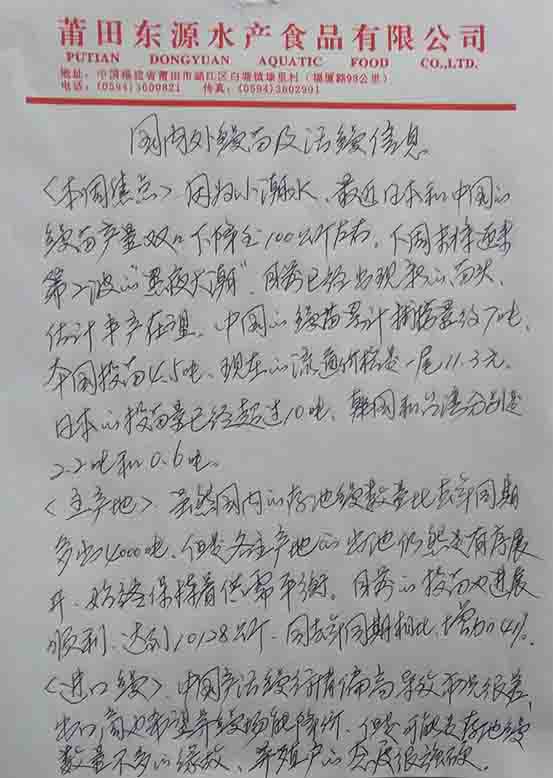 莆田东源水产食品有限公司
PUTIAN DONGYUAN AQUATIC FOOD CO.,LTD.
地址：中国福建省莆田市涵江区白塘镇埭里村（福厦路98公里）
电话：(0594)3600821 传真：(0594)3602991
国内外鳗苗及活鳗信息
〈本周焦点〉因为小潮水，最近日本和中国的
鳗苗产量双双下降至100公斤左右，下周末将迎来
第2波的“黑夜大潮”，目前已经出现新的苗头，
估计丰产在望。中国的鳗苗累计捕捞量约7吨，
本国投苗4.5吨，现在的流通价格是一尾11.3元。
日本的投苗量已经超过10吨，韩国和台湾分别是
2.2吨和0.6吨。
〈主产地〉虽然国内的存池鳗数量比去年同期
多出4000吨，但是各主产地的出池仍然是有序展
开，始终保持着供需平衡。目前的投苗也进展
顺利，达到10128公斤，同去年同期相比，增加41%。
〈进口鳗〉中国产活鳗行情偏高导致市况很差，
出口商也希望养鳗场能降价，但是可能是存池鳗
数量不多的缘故，养殖户的态度很强硬。